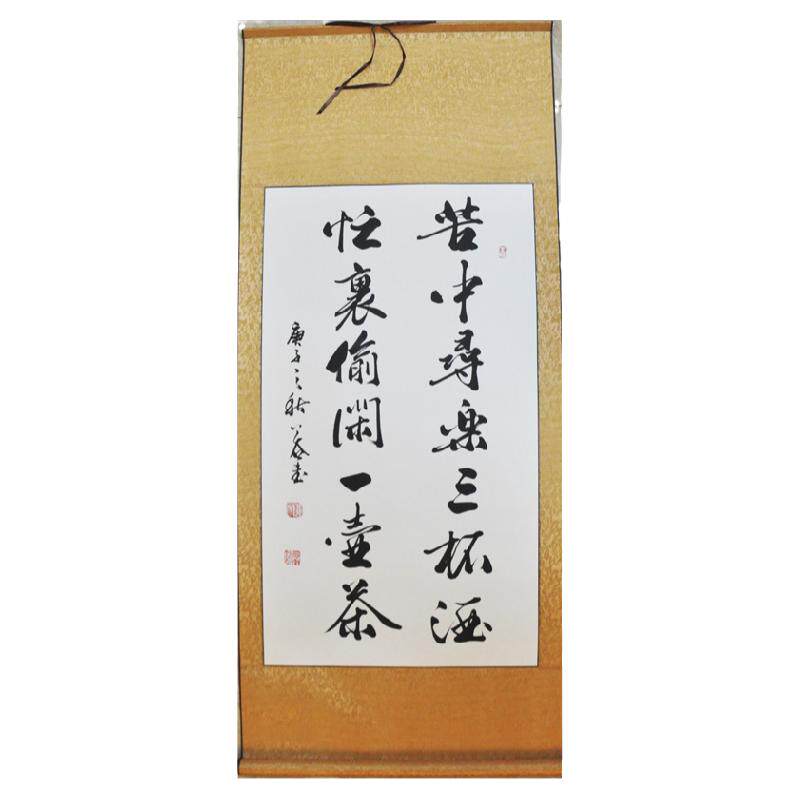 苦中尋樂三杯酒
忙裏偷閑一壺茶
庚子之秋